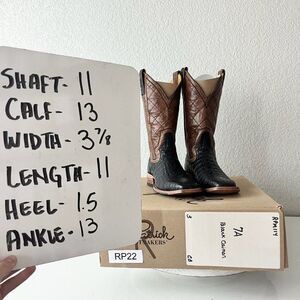 SHAFT- 11
CALF- 13
WIDTH- 3 7/8
LENGTH- 11
HEEL- 1.5
ANKLE- 13
RP22
7A
RP1114